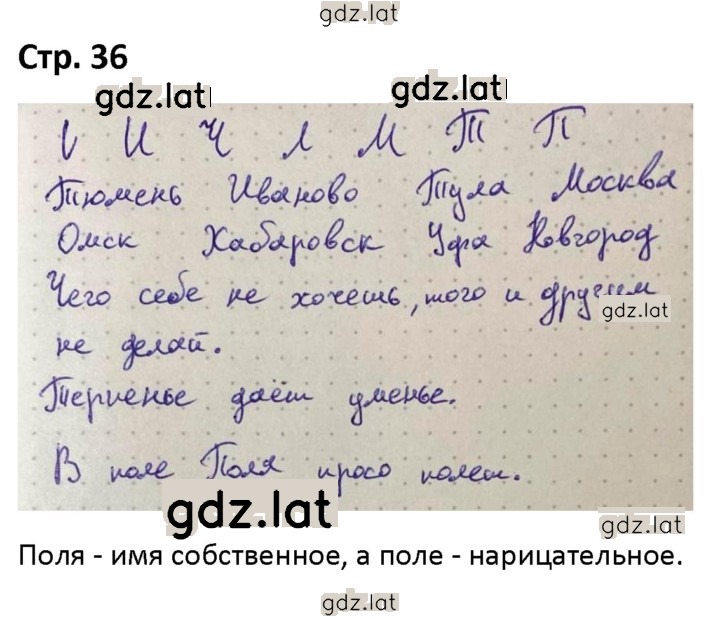 gdz.lat
Стр. 36
gdz.lat
gdz.lat
И Ч Л М Т П
Тюмень Иваново Тула Москва
Омск Хабаровск Уфа Новгород
Чего себе не хочешь, того и другим
gdz.lat
не делай.
Терпенье даёт уменье.
В поле Поля просо полет.
gdz.lat
gdz.lat
Поля - имя собственное, а поле - нарицательное.
gdz.lat